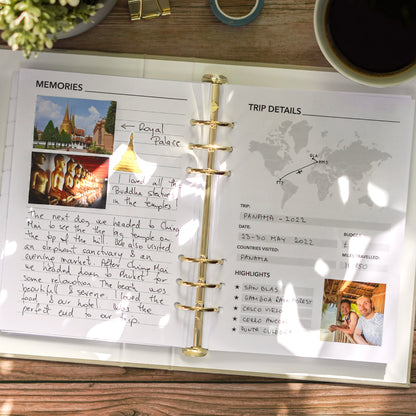 MEMORIES
Royal
Palace
I loved all the
Buddha statues
in the temples!
The next day we headed to Chiang
Mai to see the big temple on
the top of the hill. We also visited
an elephant sanctuary & an
evening market. After Chiang Mai
we headed down to Phuket for
some relaxation. The beach was
beautiful & serene. I loved the
food & our hotel was the
perfect end to our trip.
TRIP DETAILS
TRIP:
PANAMA - 2022
DATE:
BUDGET:
£
23-30 MAY 2022
COUNTRIES VISITED:
MILES TRAVELLED:
PANAMA
HIGHLIGHTS
★ SAN BLAS
★ GAMBOA RAINFOREST
★ CASCO VIEJO
★ CERRO ANCON
★ PUNTA CULEBRA